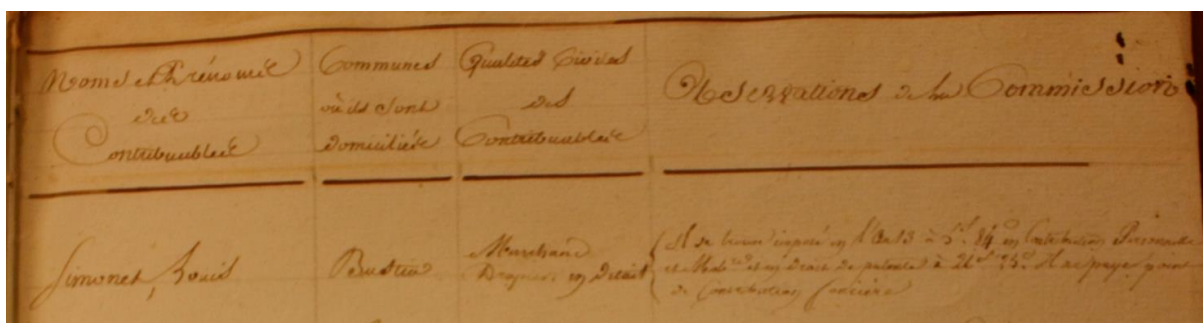 Noms et Prénoms
des
Contribuables
Communes
où ils sont
domiciliés
Qualités Civiles
des
Contribuables
Observations de la Commission
Simonet, Louis
Bastia
Marchand
Drapier en détail
Il se trouve imposé en l'an 13 à 5 f. 84 c. en Contribution Personnelle
et Mob. et en droit de patente à Il ne paye point
de Contribution foncière